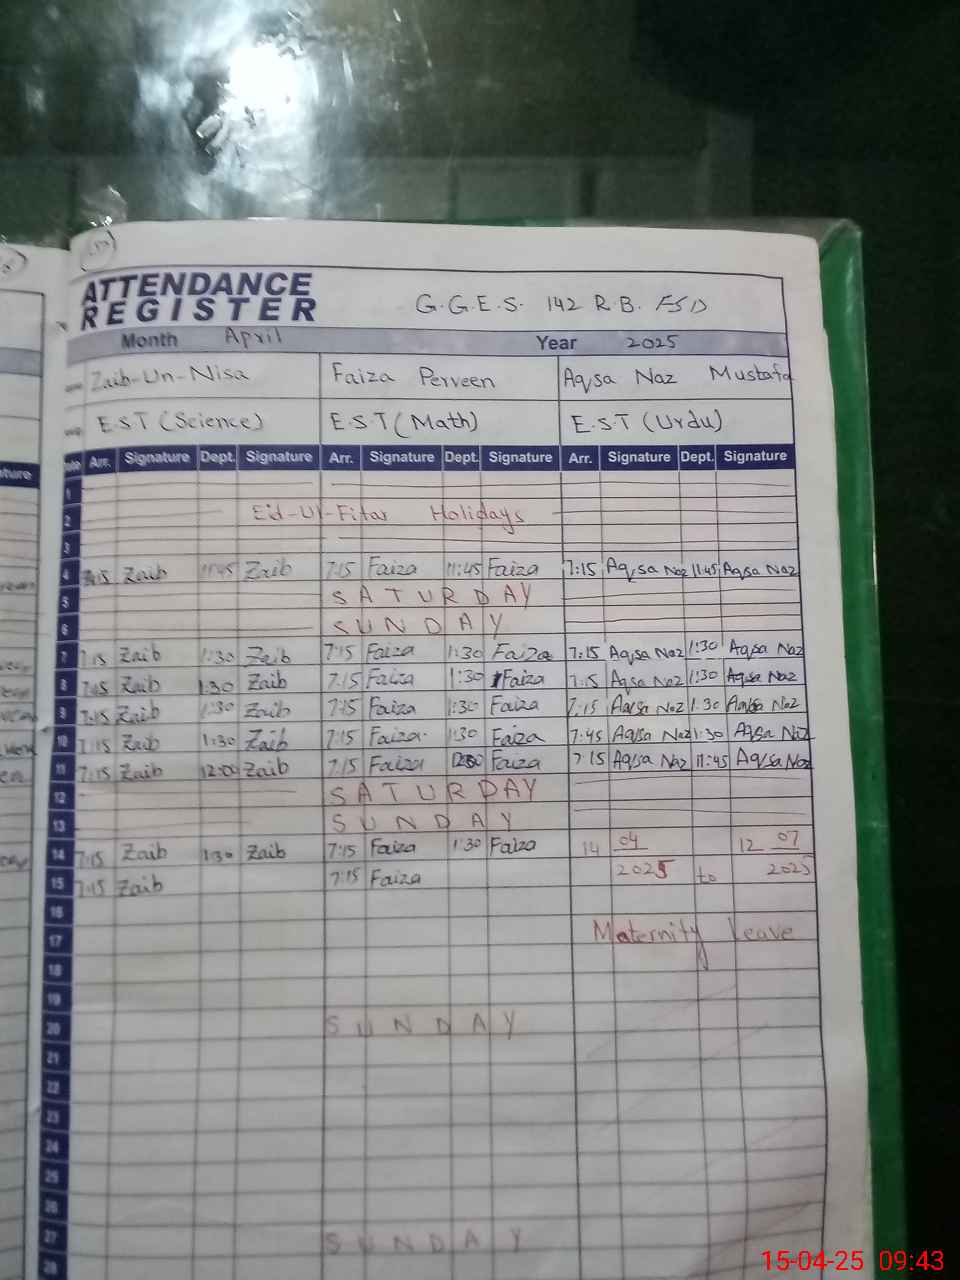 ATTENDANCE
REGISTER
G.G.E.S. 142 R.B. FSD
Month April Year 2025
Zaib-Un-Nisa Faiza Perveen Aqsa Naz Mustafa
E.S.T (Science) E.S.T (Math) E.S.T (Urdu)
Arr. Signature Dept. Signature Arr. Signature Dept. Signature Arr. Signature Dept. Signature
1
2 Eid-Ul-Fitar Holidays
3
4 Zaib 11:45 Zaib 7:15 Faiza 11:45 Faiza 7:15 Aqsa Naz 11:45 Aqsa Naz
5 SATURDAY
6 SUNDAY
7 7:15 Zaib 1:30 Zaib 7:15 Faiza 1:30 Faiza 7:15 Aqsa Naz 1:30 Aqsa Naz
8 Zaib 1:30 Zaib 7:15 Faiza 1:30 Faiza 7:15 Aqsa Naz 1:30 Aqsa Naz
9 7:15 Zaib 1:30 Zaib 7:15 Faiza 1:30 Faiza 7:15 Aqsa Naz 1:30 Aqsa Naz
10 7:15 Zaib 1:30 Zaib 7:15 Faiza 1:30 Faiza 7:45 Aqsa Naz 1:30 Aqsa Naz
11 7:15 Zaib 12:00 Zaib 7:15 Faiza Faiza 7:15 Aqsa Naz 11:45 Aqsa Naz
12 SATURDAY
13 SUNDAY
14 7:15 Zaib 1:30 Zaib 7:15 Faiza 1:30 Faiza 14 04 12 07
15 7:15 Zaib 7:15 Faiza 2025 to 2025
16
17 Maternity Leave
18
19
20 SUNDAY
21
22
23
24
25
26
27 SUNDAY
28
15-04-25 09:43